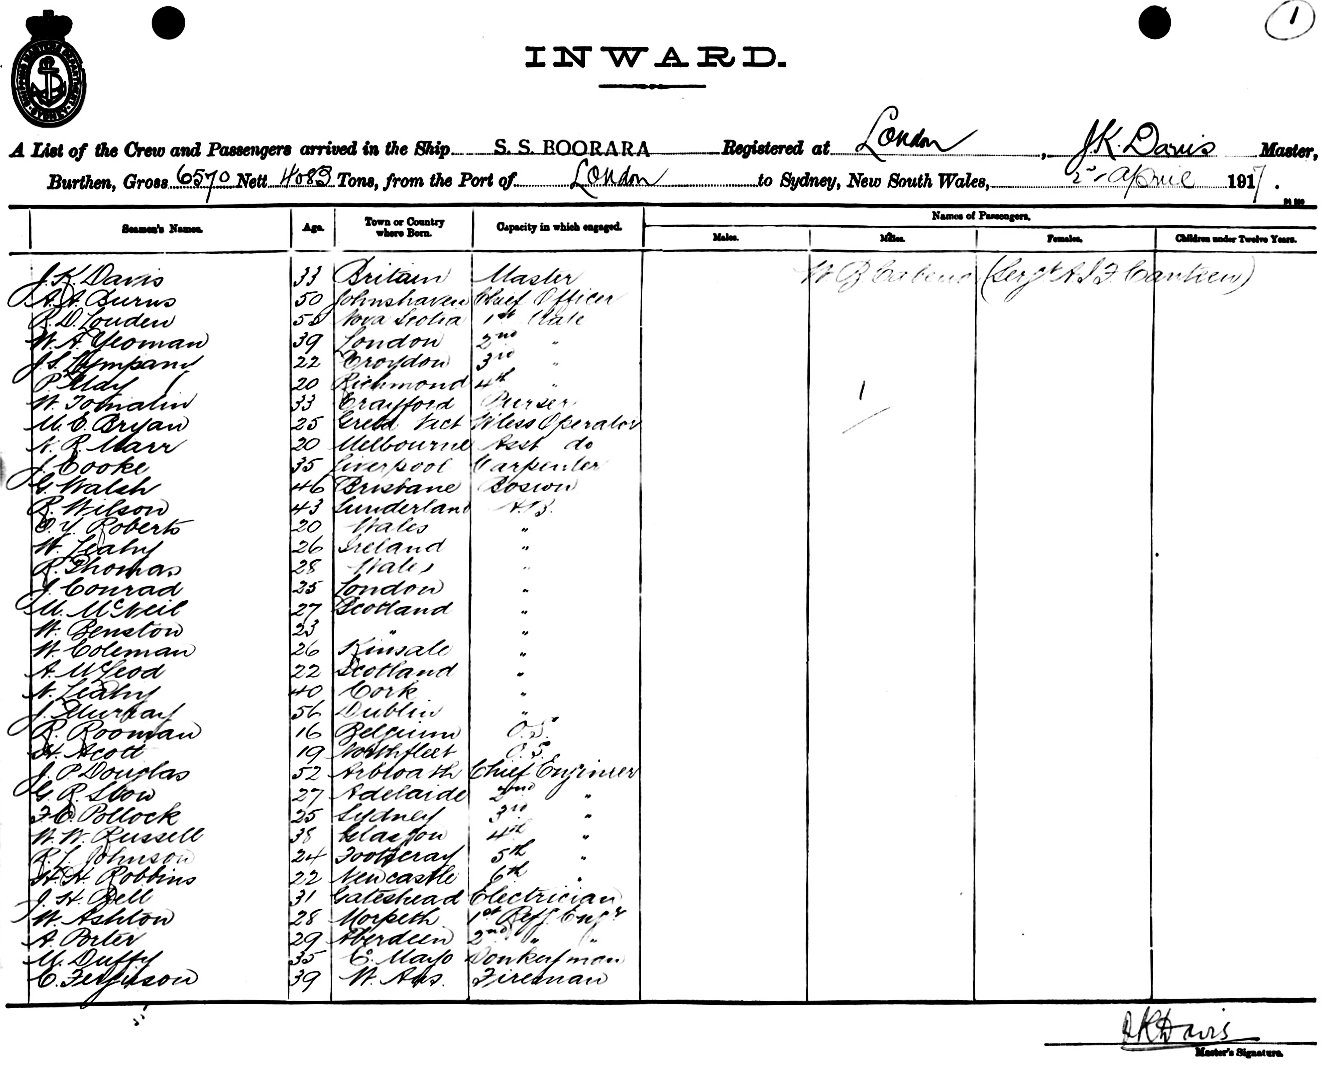 1
INWARD.
A List of the Crew and Passengers arrived in the Ship S. S. BOORARA Registered at London, J.K. Davis Master,
Burthen, Gross 6570 Nett 4083 Tons, from the Port of London to Sydney, New South Wales, 2nd April 1917.
Names of Passengers.
Seamen's Names. Age. Town or Country where Born. Capacity in which engaged. Males. Males. Females. Children under Twelve Years.
J. K. Davis 33 Britain Master W B (Sergt A.I.F. Canteen)
A. A. Burns 50 Johnshaven Chief Officer
R. D. Louden Nova Scotia 1st Mate
W. A. Yeoman 39 London 2nd "
J. S. Tympany 22 Croydon 3rd "
P. Udy 20 Richmond 4th "
W. Tomalin 33 Crayford Purser
1
M. E. Bryan 25 Vict W'less Operator
R. Marr 20 Melbourne Asst do
J. Cooke 35 Liverpool Carpenter
G. Walsh 46 Brisbane Boswn
R. Wilson 43 Sunderland A.B.
O. Y. Roberts 20 Wales "
W. Leahy 26 Ireland "
R. Thomas 28 Wales "
J. Conrad 35 London "
M. McNeil 27 Scotland "
W. Benston 23 " "
W. Coleman 26 Kinsale "
A. McLeod 22 Scotland "
N. Leahy 40 Cork "
J. Murray 56 Dublin "
R. Rooman 16 Belgium O.S.
H. Scott 19 Northfleet O.S.
J. P. Douglas 52 Arbroath Chief Engineer
G. R. Stow 27 Adelaide 2nd "
F. C. Pollock 25 Sydney 3rd "
W. W. Russell 38 Glasgow 4th "
R. L. Johnson 24 Footscray 5th "
H. H. Robbins 22 Newcastle 6th "
J. H. Bell 31 Gateshead Electrician
W. Ashton 28 Morpeth 1st Reff. Engr
A. Porter 29 Aberdeen 2nd " "
M. Duffy 35 C. Mayo Donkeyman
C. Ferguson 39 W. Aus. Fireman
J K Davis
Master's Signature.